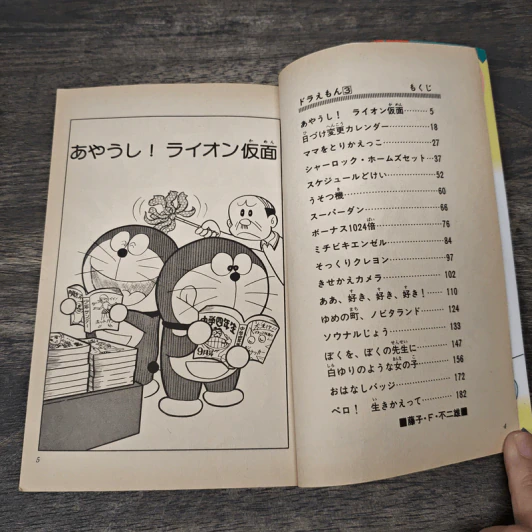 ドラえもん3 もくじ
あやうし! ライオン仮面…………5
日づけ変更カレンダー…………18
ママをとりかえっこ…………27
シャーロック・ホームズセット…37
スケジュールどけい…………52
うそつ機…………60
スーパーダン…………66
ボーナス1024倍…………76
ミチビキエンゼル…………84
そっくりクレヨン…………97
きせかえカメラ…………102
ああ、好き、好き、好き!…110
ゆめの町、ノビタランド…124
ソウナルじょう…………133
ぼくを、ぼくの先生に…………147
白ゆりのような女の子…………156
おはなしバッジ…………172
ペロ! 生きかえって…………182
■藤子・F・不二雄■
4
あやうし! ライオン仮面
小学四年生
9月号
5